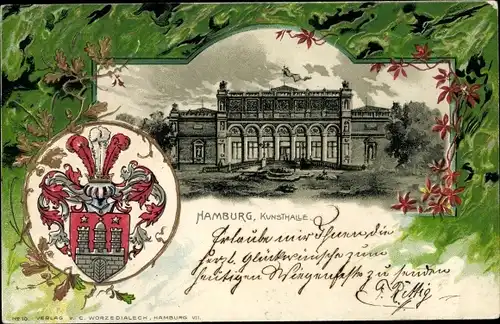 HAMBURG, KUNSTHALLE.
Erlaube mir Ihnen die
herzl. Glückwünsche zum
heutigen Wiegenfeste zu senden
No 10. VERLAG v. C. WORZEDIALECK, HAMBURG